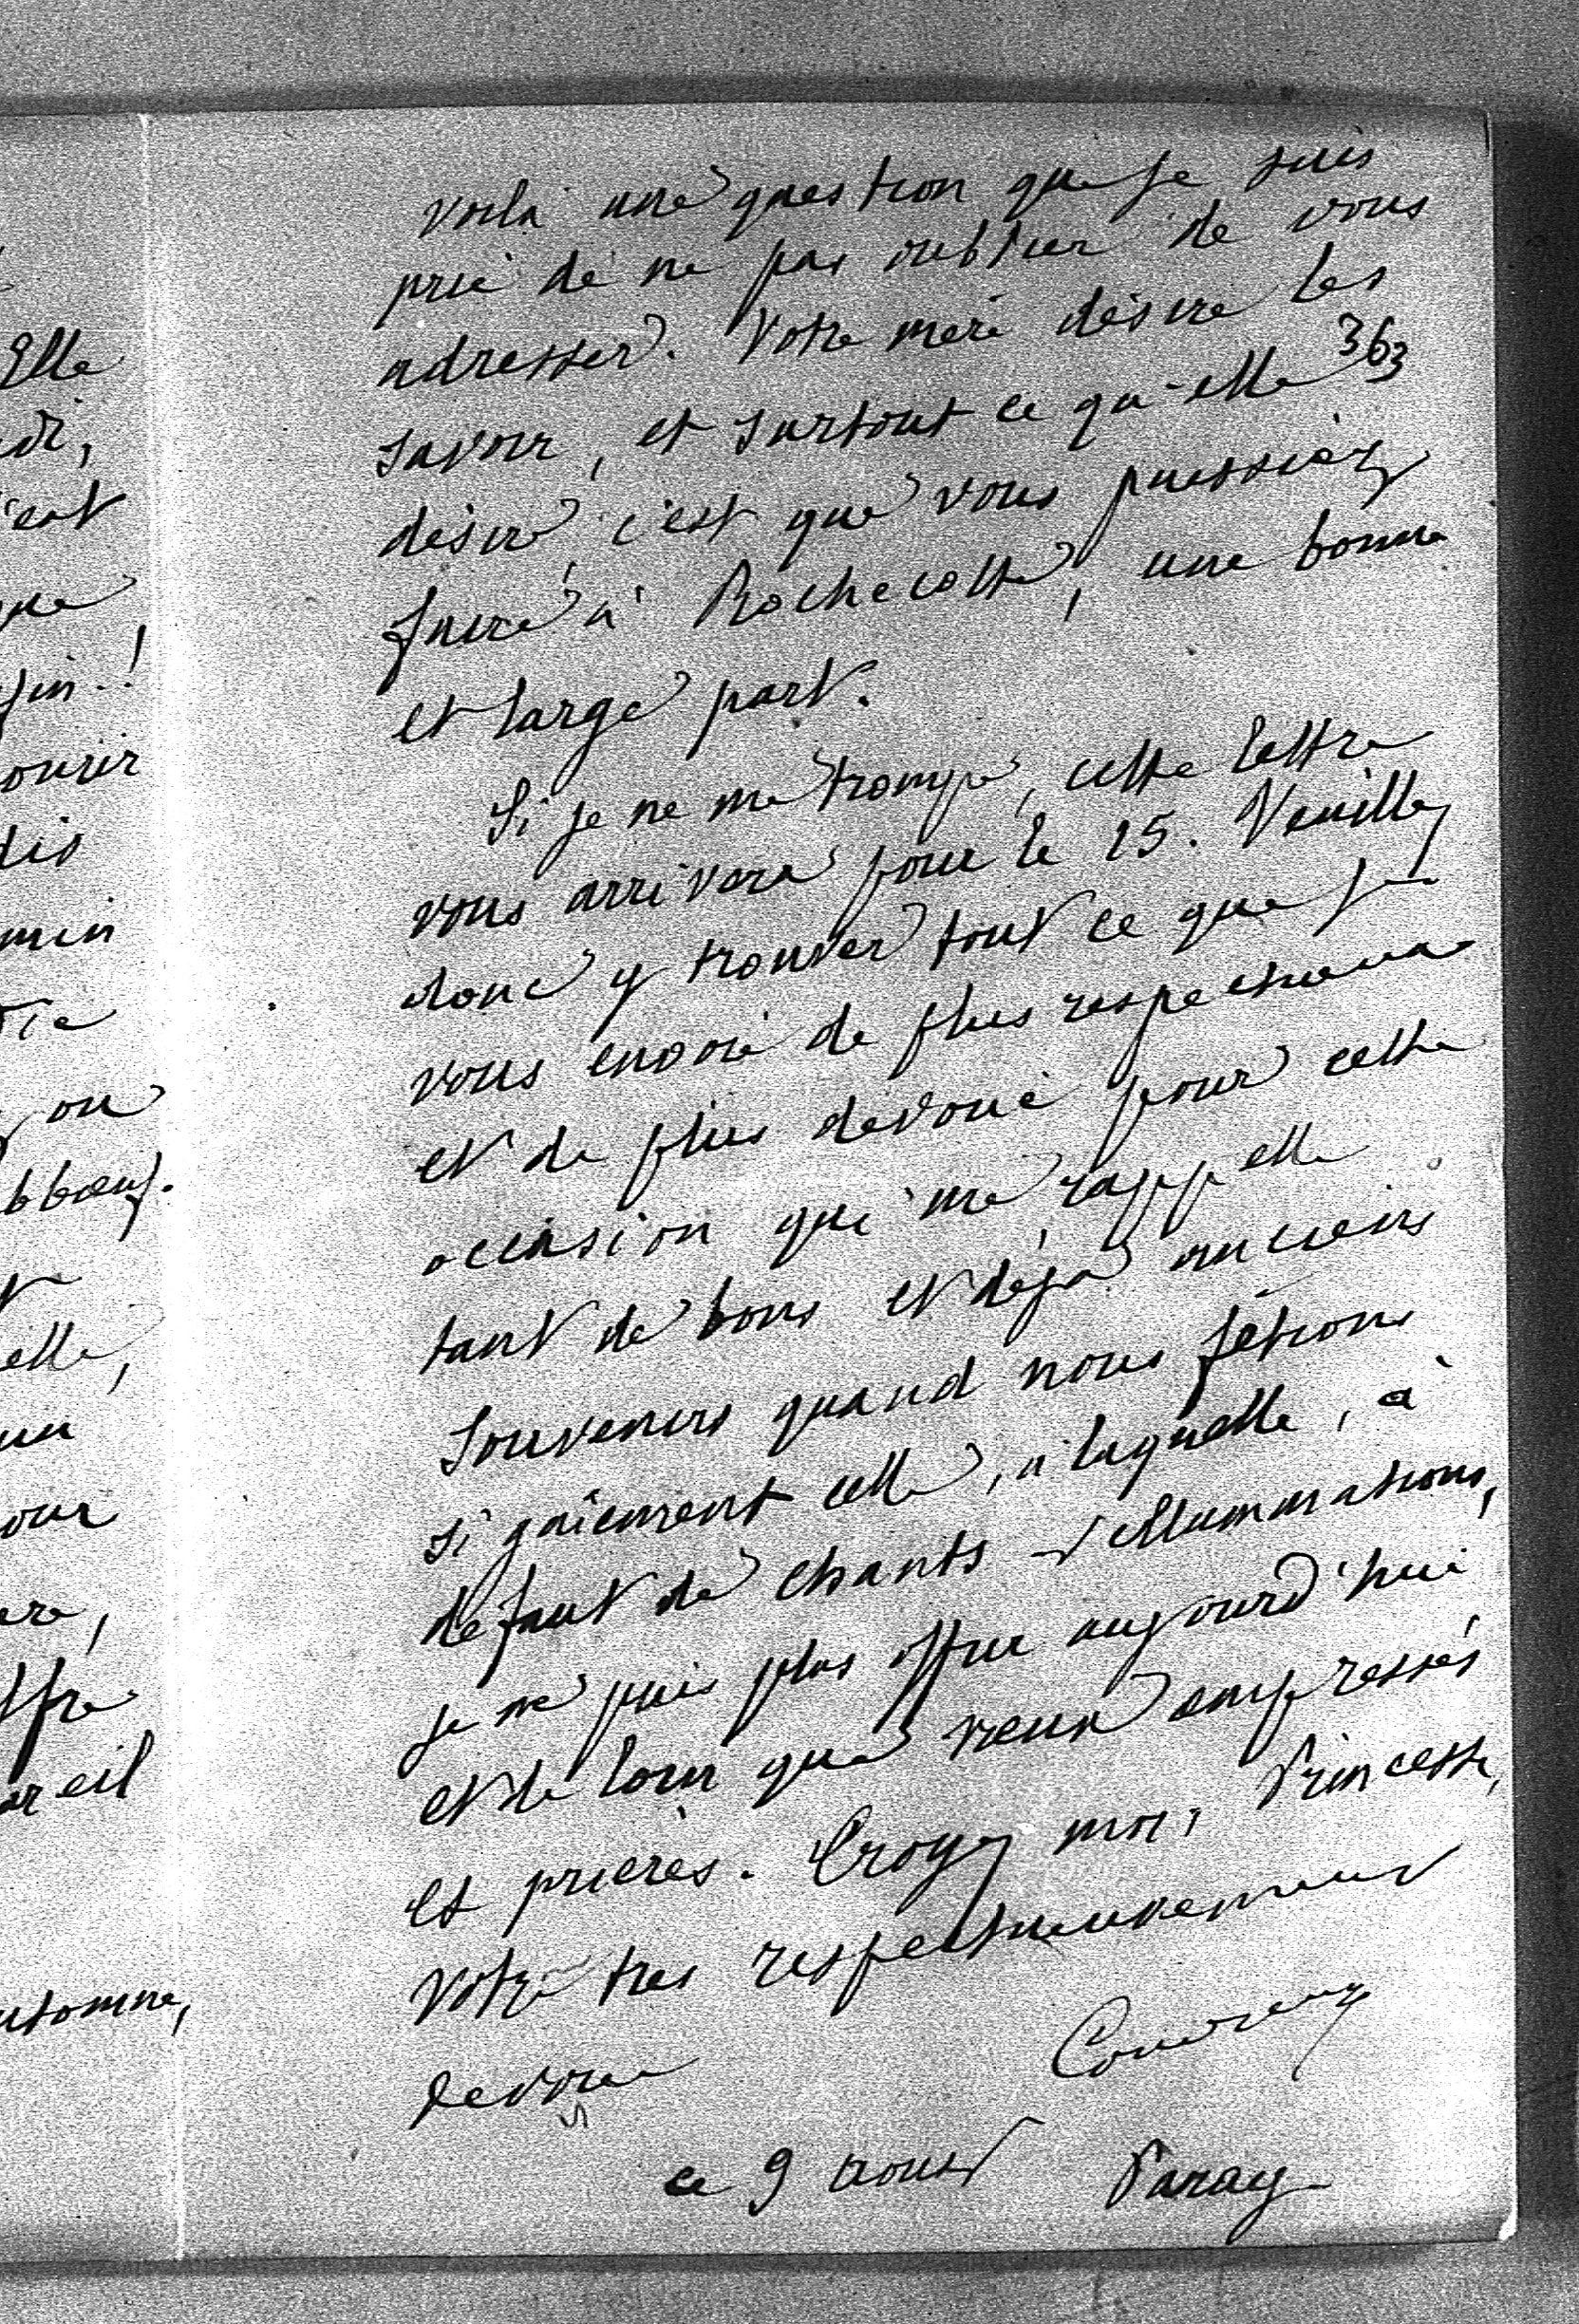 Elle
di,
c'est
que
fin..!
ourir
dis
min
ou
bboeuf.
elle,
un
our
ere,
ffre
areil
utomne,
voilà une question que je suis
prié de ne pas oublier de vous
adresser. Votre mère désire les
363
savoir, et surtout ce qu'elle
désire, c'est que vous puissiez
faire à Rochecotte, une bonne
et large part.
Si je ne me trompe, cette lettre
vous arrivera pour le 15. Veuillez
donc y trouver tout ce que je
vous envoie de plus respectueux
et de plus dévoué pour cette
occasion qui me rappelle
tant de bons et déjà anciens
souvenirs quand nous fêtions
si gaiement celle, à laquelle, à
défaut de chants d'illuminations,
je ne puis plus offrir aujourd'hui
et de loin que vœux empressés
et prières. Croyez moi, Princesse,
Votre très respectueusement
dévoué
ce 9 aoust